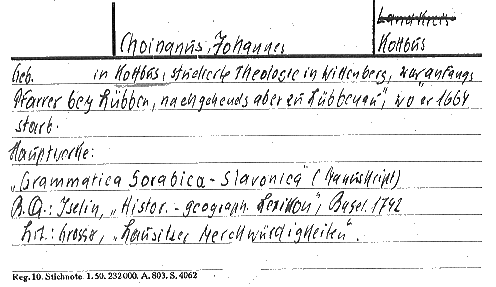 Landkreis
Choinanus, Johannes Kottbus
Geb. in Kottbus, studierte Theologie in Wittenberg, war anfangs
Pfarrer bey Lübben, nachgehends aber zu Lübbenau", wo er 1664
starb.
Hauptwerke:
"Grammatica Sorabica-Slavonica" (Manuskript)
B.Q.: Iselin, "Histor.-geograph. Lexikon", Basel. 1742
Lit.: Grosser, "Lausitzer Merckwürdigkeiten".
Reg. 10. Stichnote. 1. 50. 232000. A. 803. S. 4062